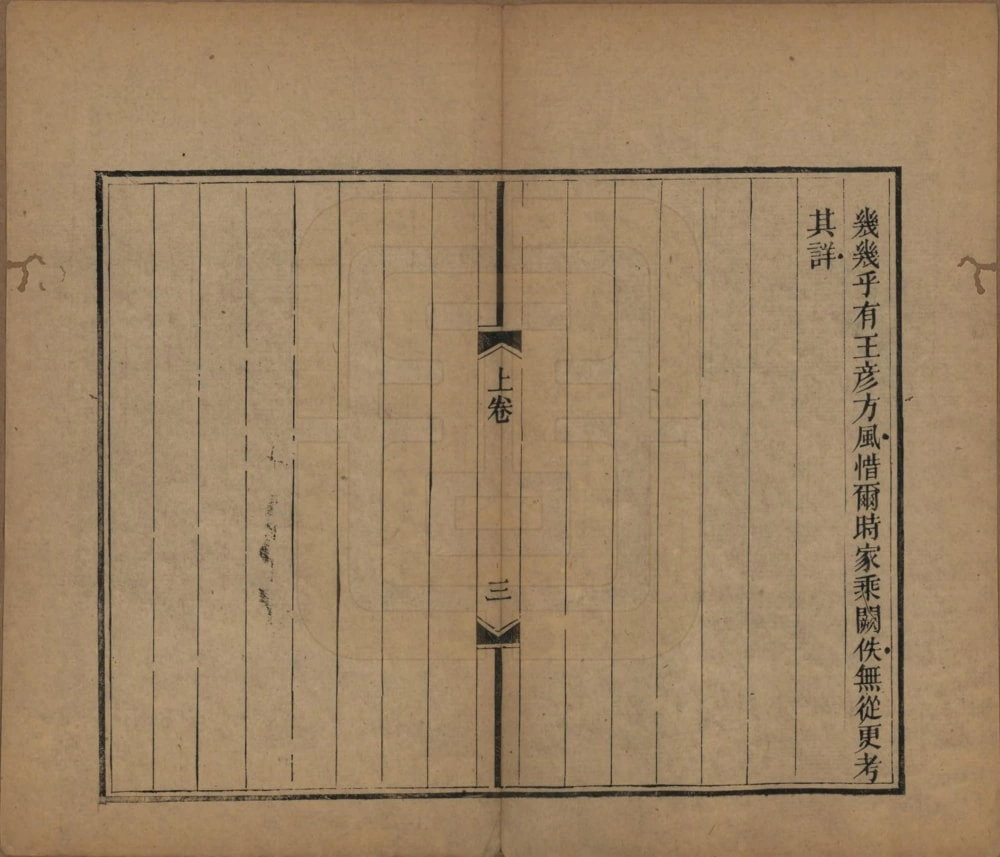 幾幾乎有王彦方風惜爾時家乘闕佚無從更考
其詳
上卷
三